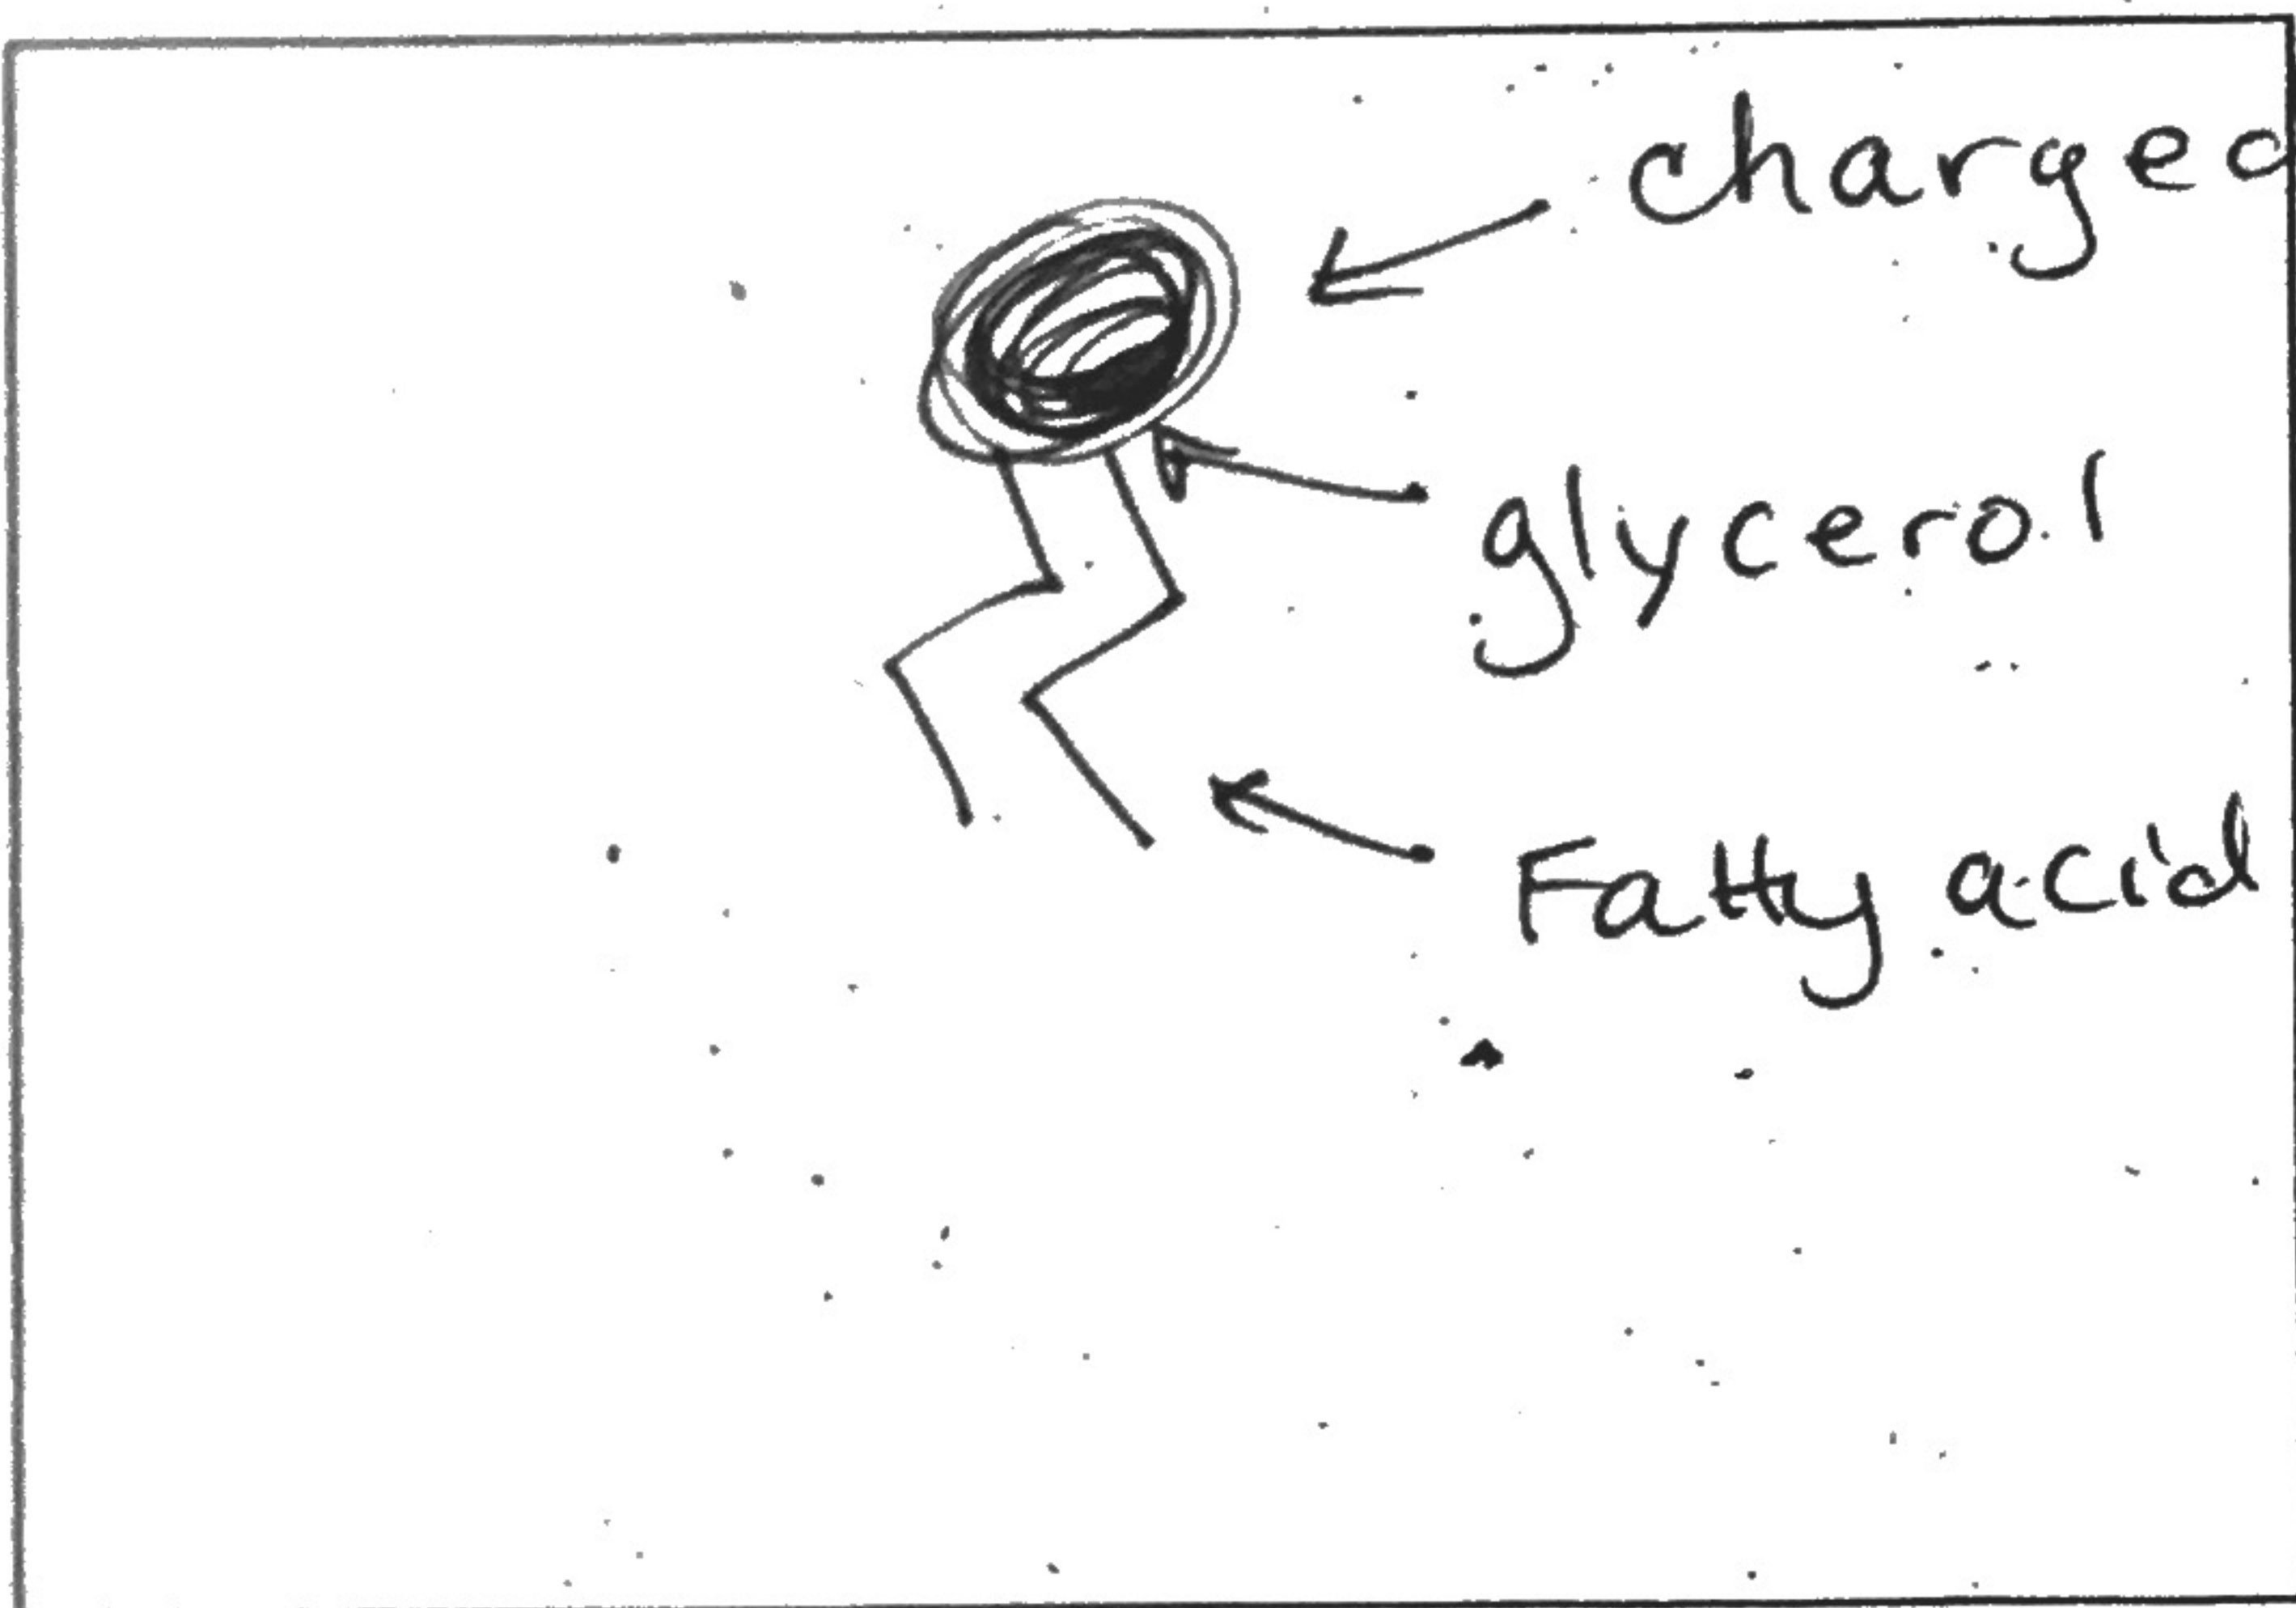 charged
glycerol
Fatty acid